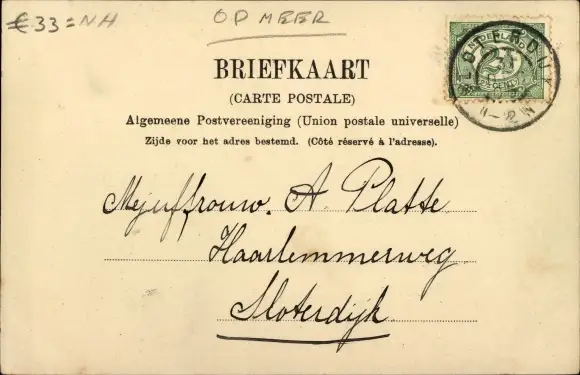 € 33 = NH
OPMEER
NEDERLAND
2½
CENT
BRIEFKAART
(CARTE POSTALE)
Algemeene Postvereeniging (Union postale universelle)
Zijde voor het adres bestemd. (Côté réservé à l'adresse).
Mejuffrouw. A. Platte
Haarlemmerweg
Sloterdijk